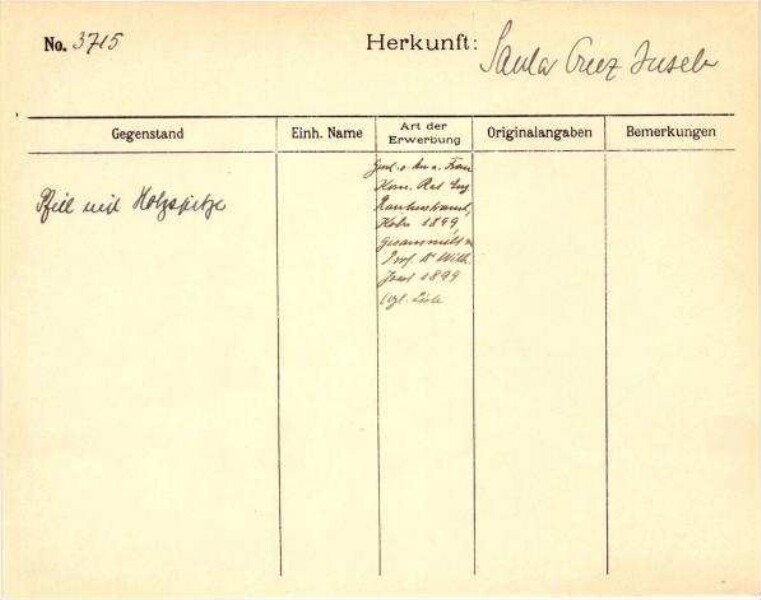 No. 3715
Herkunft: Santa Cruz Inseln
Gegenstand
Einh. Name
Art der Erwerbung
Originalangaben
Bemerkungen
Pfeil mit Holzspitze
Gesch. v. Hrn u. Frau
Kom. Rat Eug
Rautenstrauch,
Köln 1899,
gesammelt v.
Prof. Dr Wilh.
Joest 1899
vgl. Liste